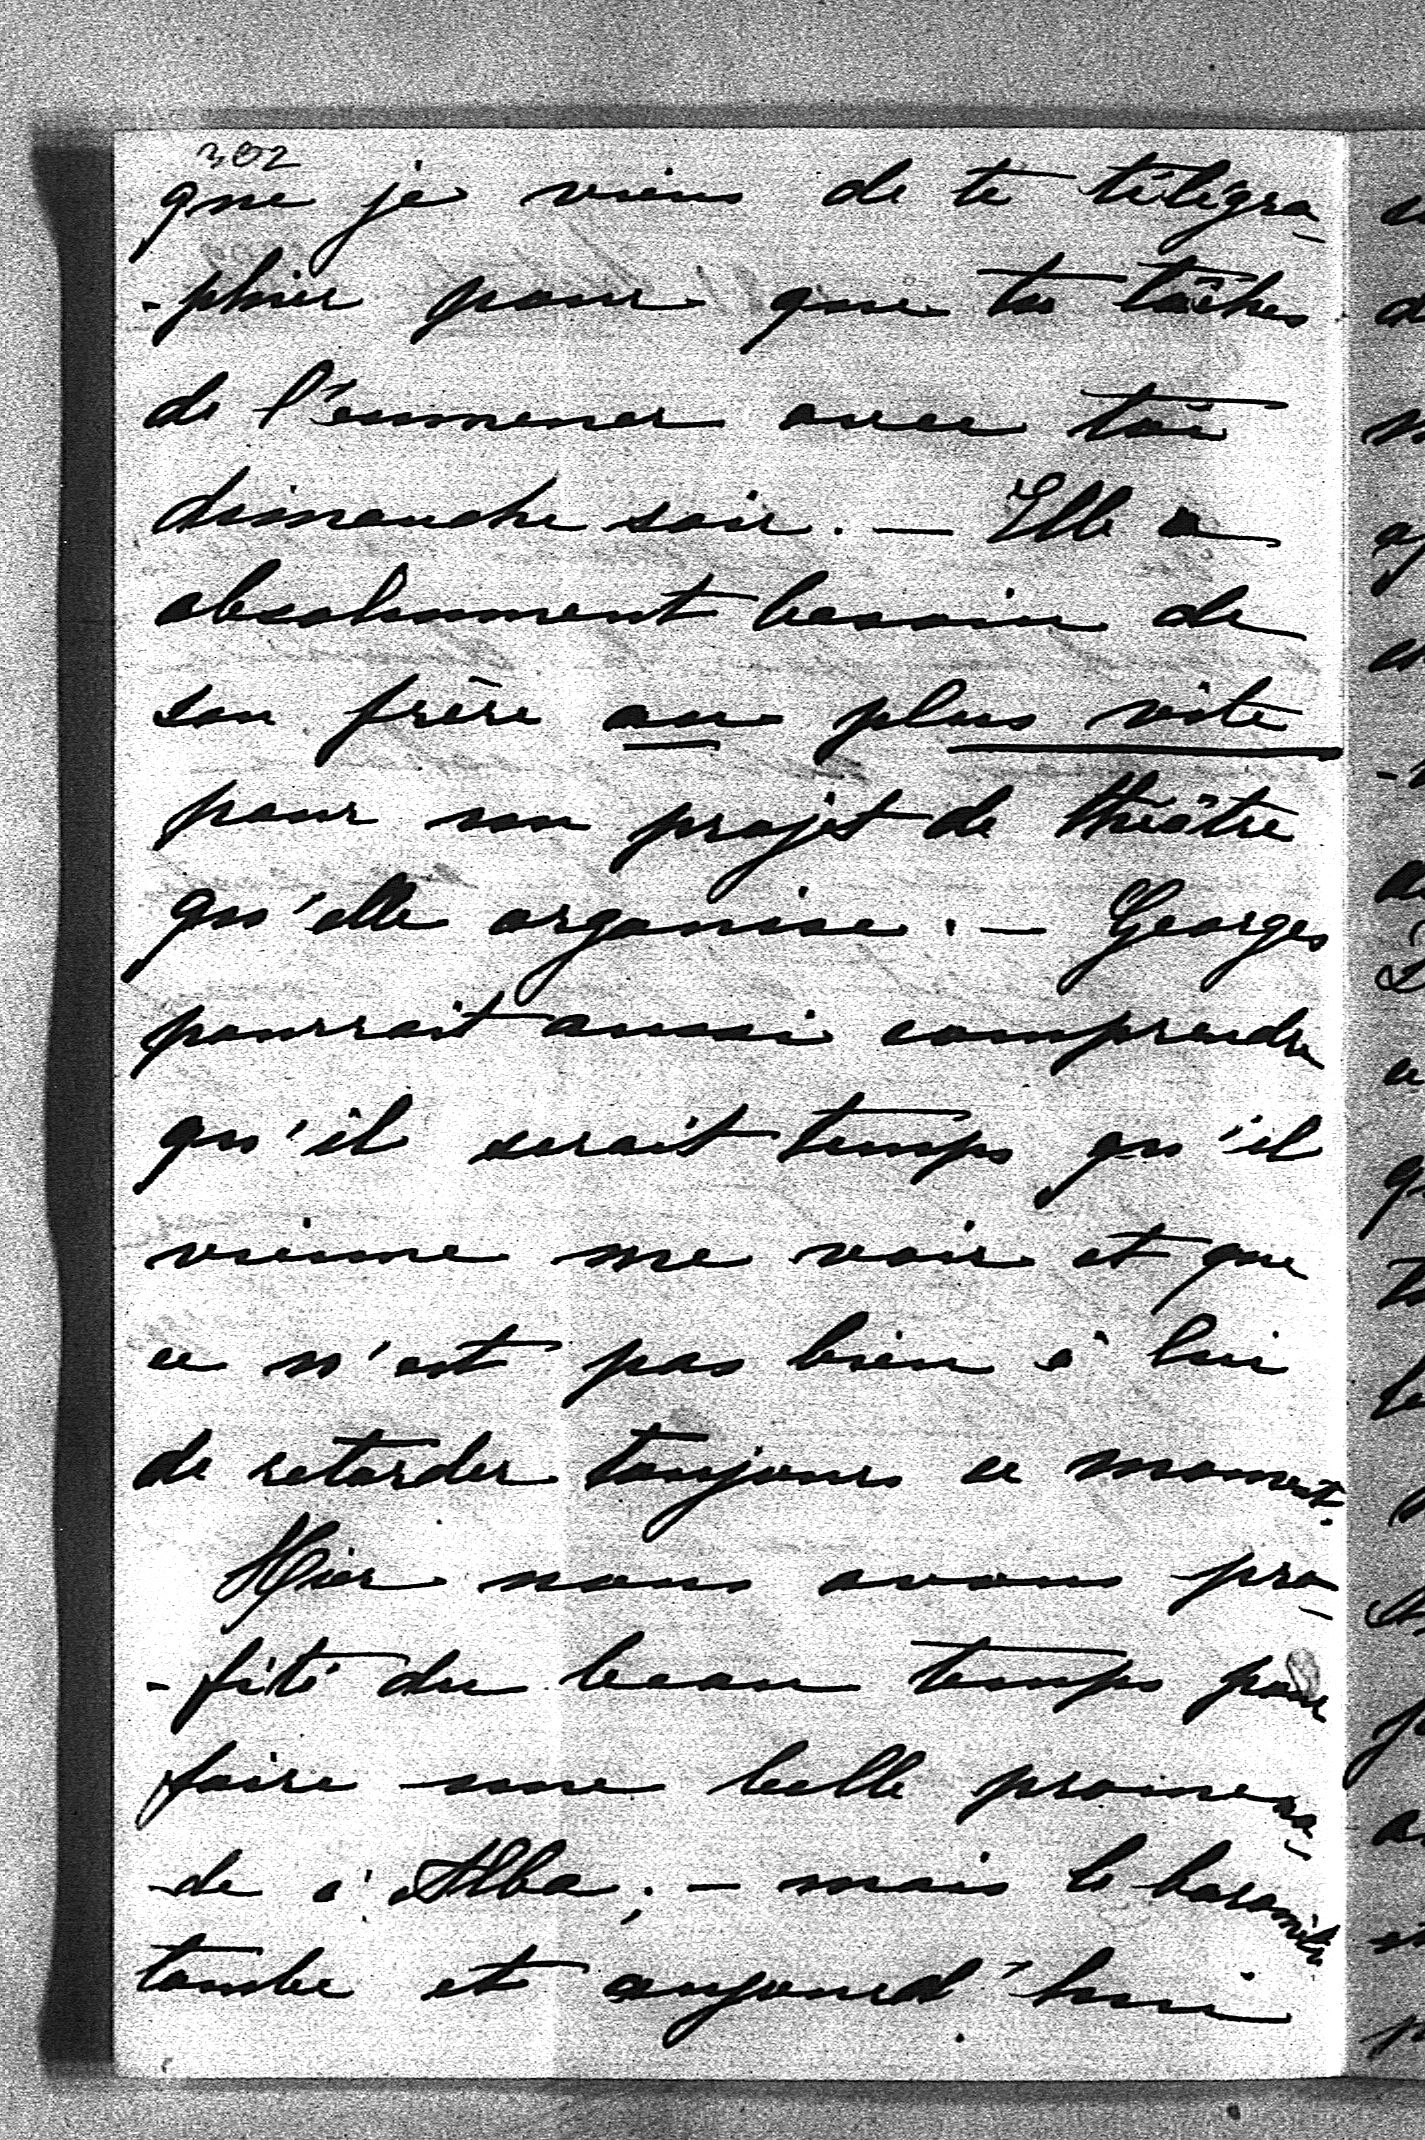 302
que je viens de te télégra-
-phier pour que tu tâches
de l'emmener avec toi
dimanche soir. — Elle a
absolument besoin de
son frère au plus vite
pour un projet de théâtre
qu'elle organise. — Georges
pourrait aussi comprendre
qu'il serait temps qu'il
vienne me voir et que
ce n'est pas bien à lui
de retarder toujours ce moment.
Hier nous avons pro-
-fité du beau temps pour
faire une belle promena-
-de à Alba; — mais le baromètre
tombe et aujourd'hui